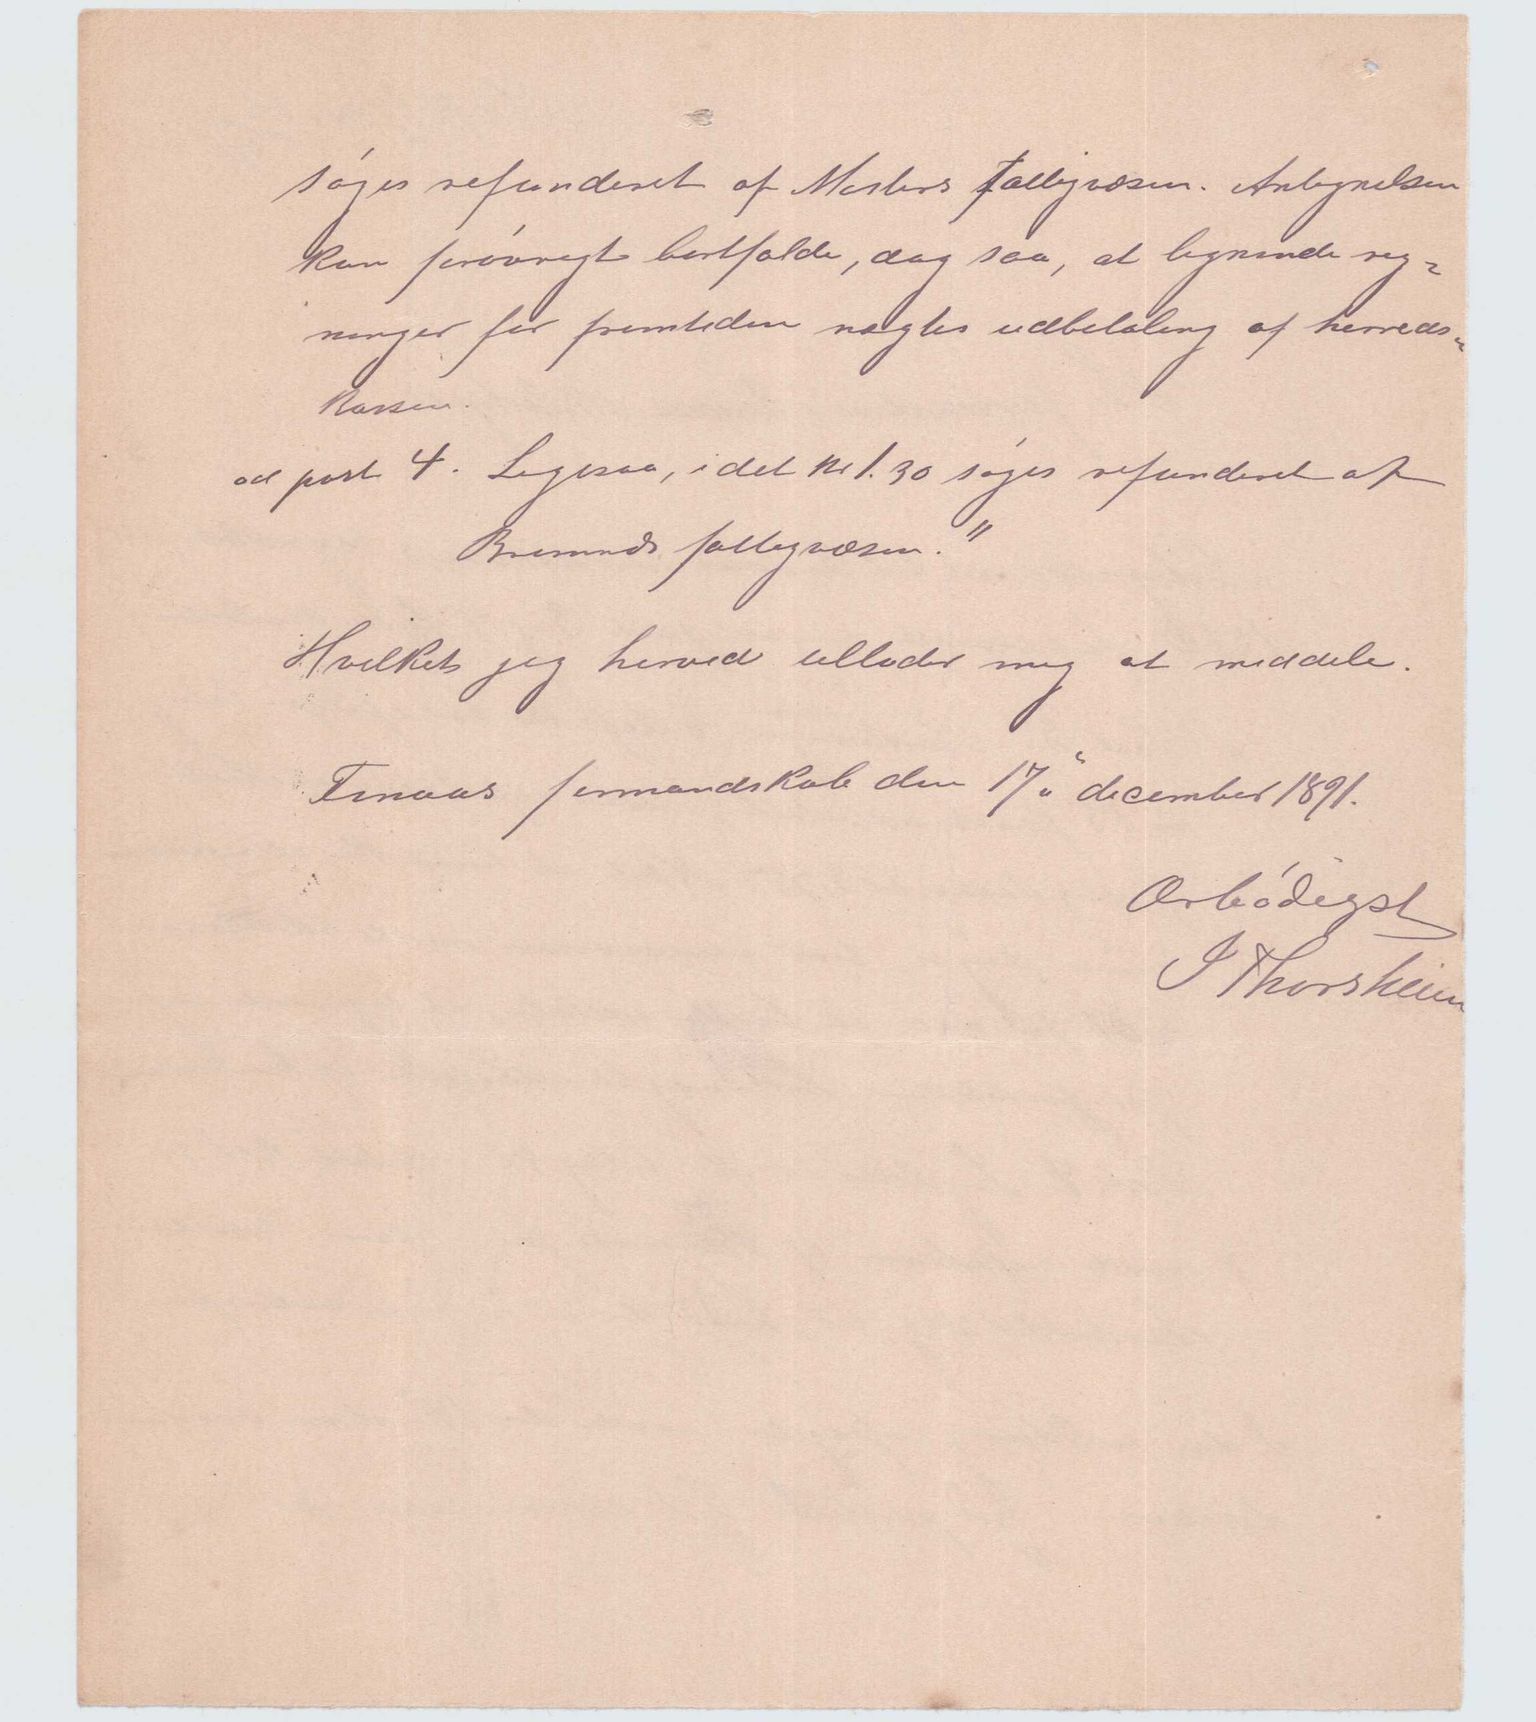 søges refunderet af Mosters fattigvæsen. Antegnelsen
kan forøvrigt bortfalde, dog saa, at lignende reg=
ninger for fremtiden nægtes udbetaling af herreds-
kassen.
ad post 4. Ligesaa, idet Kr 1.30 søges refunderet af
Bremnes fattigvæsen."
Hvilket jeg herved tillader mig at meddele.
Finaas formandskab den 17 december 1891.
Ærbødigst
J Thorsheim